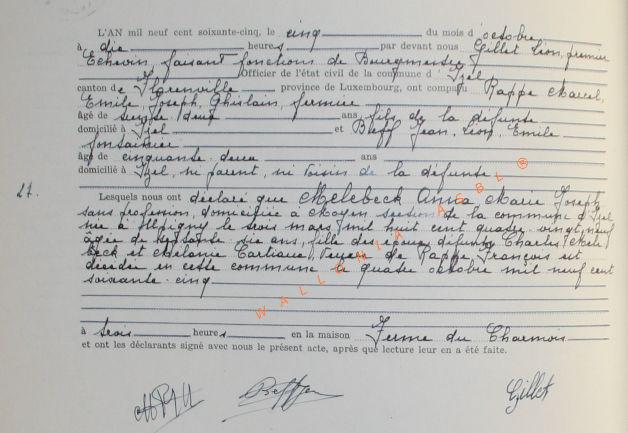 L'AN mil neuf cent soixante-cinq, le cinq du mois d'octobre
à dix heures par devant nous Gillet Léon, premier
Echevin, faisant fonctions de Bourgmestre,
Officier de l'état civil de la commune d'Izel
canton de Florenville province de Luxembourg, ont comparu Pappe Marcel,
Emile, Joseph, Ghislain, fermier
âgé de ans, fils de la défunte
domicilié à Izel et Jean, Léon, Emile
fontainier
âgé de cinquante deux ans
domicilié à Izel, ni parent, ni voisin de la défunte
27.
Lesquels nous ont déclaré que Melebeck Anna Marie Joseph
sans profession, domiciliée à Moyen section de la commune d'Izel
née à le trois mars mil huit cent quatre vingt neuf
âgée de septante six ans, fille des époux défunts Charles Mele
beck et Mélanie veuve de Pappe François est
décédée en cette commune le quatre octobre mil neuf cent
soixante-cinq
à trois heures en la maison Ferme du Charmois
et ont les déclarants signé avec nous le présent acte, après que lecture leur en a été faite.
WALLONIA ASBL ®
Gillet